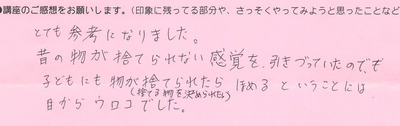 ●講座のご感想をお願いします。(印象に残ってる部分や、さっそくやってみようと思ったことなど
とても参考になりました。
昔の物が捨てられない感覚を、引きづっていたのでも
子どもにも物が捨てられたら ほめる ということには
(捨てる物を決められたら)
目からウロコでした。